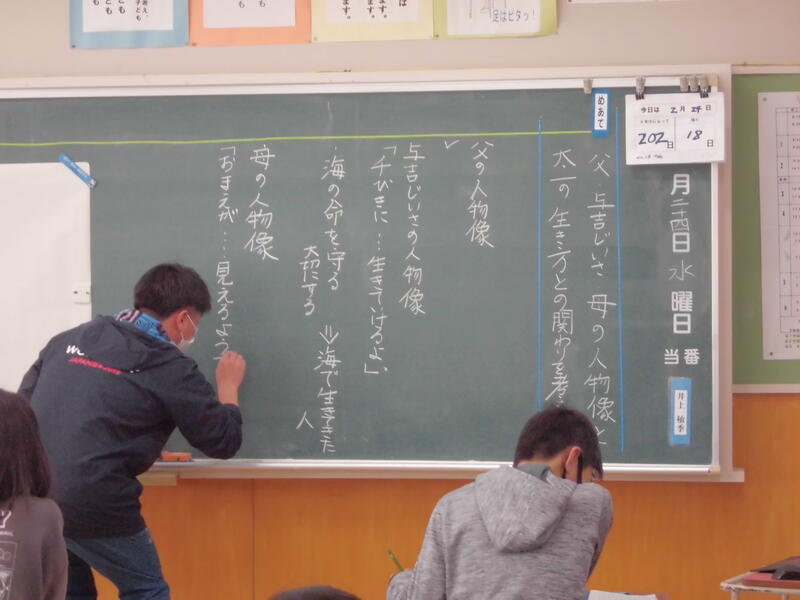 足はピタッ!
今日は 2月24日
202日
18日
月二十四日水曜日
当番
井上
めあて
父、与吉じいさ 母の人物像と
太一の生き方との関わりを考
父の人物像
与吉じいさの人物像
「千びきに…生きていけるよ」
・海の命を守る
大切にする
⇒海で生きてきた
人
母の人物像
「おまえが…見えるよう